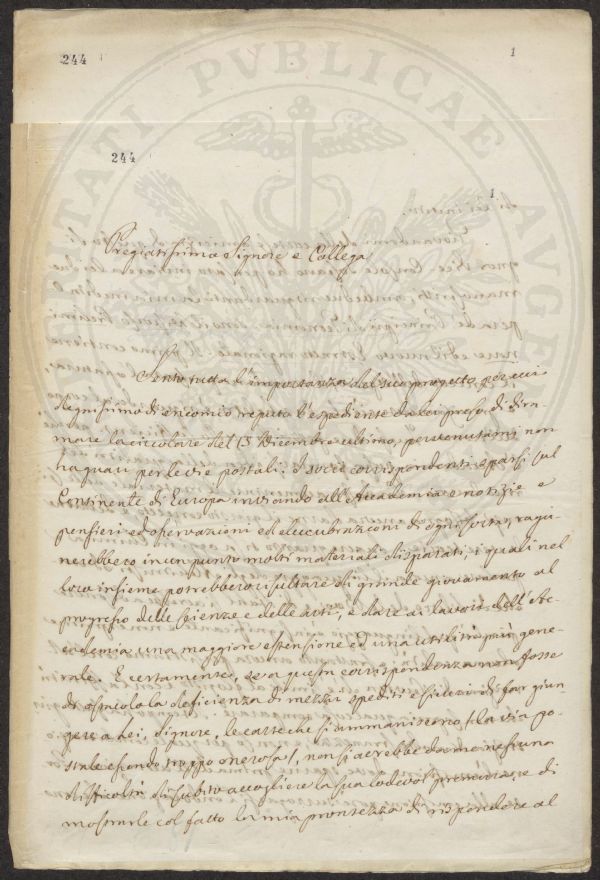 244
1
PVBLICAE
VTILITATI
AVGE
244
1
Pregiatissimo Signore e Collega
Sento tutta l'importanza del suo progetto, per cui
degnissimo di encomio reputo l'espediente da Lei preso, di dira-
mare la circolare del 13 Dicembre ultimo, pervenutami non
ha guari per le vie postali. I socii corrispondenti sparsi sul
Continente di Europa inviando all'Accademia e notizie e
pensieri ed osservazioni ed elucubrazioni di ogni sorta, ragu-
nerebbero in un punto molti materiali disparati, i quali nel
loro insieme potrebbero risultare di grande giovamento al
progresso delle scienze e delle arti, e dare ai lavori dell'Ac-
cademia una maggiore estensione ed una utilità più gene-
rale. E certamente, se a questa corrispondenza non fosse
di ostacolo la deficienza di mezzi spediti e sicuri di far giun-
gere a Lei, Signore, le carte che si ammaniscono (la via po-
stale essendo troppo onerosa), non si avrebbe da me nessuna
difficoltà di subito accogliere la sua lodevol premura e di
mostrarle col fatto la mia prontezza di rispondere al